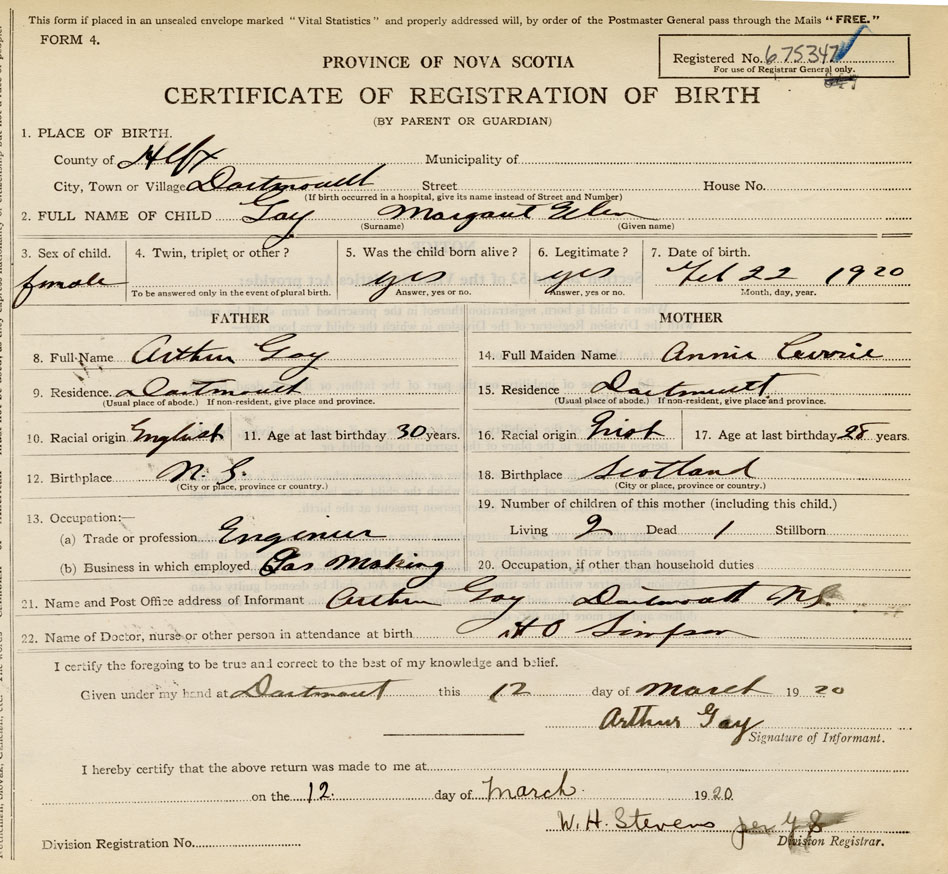 This form if placed in an unsealed envelope marked "Vital Statistics" and properly addressed will, by order of the Postmaster General pass through the Mails "FREE."
FORM 4.
Registered No. 675347
For use of Registrar General only.
PROVINCE OF NOVA SCOTIA
CERTIFICATE OF REGISTRATION OF BIRTH
(BY PARENT OR GUARDIAN)
1. PLACE OF BIRTH.
County of Hlfx Municipality of
City, Town or Village Dartmouth Street House No.
(If birth occurred in a hospital, give its name instead of Street and Number)
2. FULL NAME OF CHILD Gay Margaret Ellen
(Surname) (Given name)
3. Sex of child. 4. Twin, triplet or other? 5. Was the child born alive? 6. Legitimate? 7. Date of birth.
female yes yes Feb 22 1920
To be answered only in the event of plural birth. Answer, yes or no. Answer, yes or no. Month, day, year.
FATHER MOTHER
8. Full Name Arthur Gay 14. Full Maiden Name Annie Currie
9. Residence. Dartmouth 15. Residence Dartmouth
(Usual place of abode.) If non-resident, give place and province. (Usual place of abode.) If non-resident, give place and province.
10. Racial origin English 11. Age at last birthday 30 years. 16. Racial origin 17. Age at last birthday 28 years.
12. Birthplace N.S. 18. Birthplace Scotland
(City or place, province or country.) (City or place, province or country.)
13. Occupation:— 19. Number of children of this mother (including this child.)
(a) Trade or profession Engineer Living 2 Dead 1 Stillborn
(b) Business in which employed Gas Making 20. Occupation, if other than household duties
21. Name and Post Office address of Informant Arthur Gay Dartmouth N.S.
22. Name of Doctor, nurse or other person in attendance at birth H O Simpson
I certify the foregoing to be true and correct to the best of my knowledge and belief.
Given under my hand at Dartmouth this 12 day of March 1920
Arthur Gay
Signature of Informant.
I hereby certify that the above return was made to me at
on the 12. day of March. 1920
W. H. Stevens per
Division Registration No. Division Registrar.